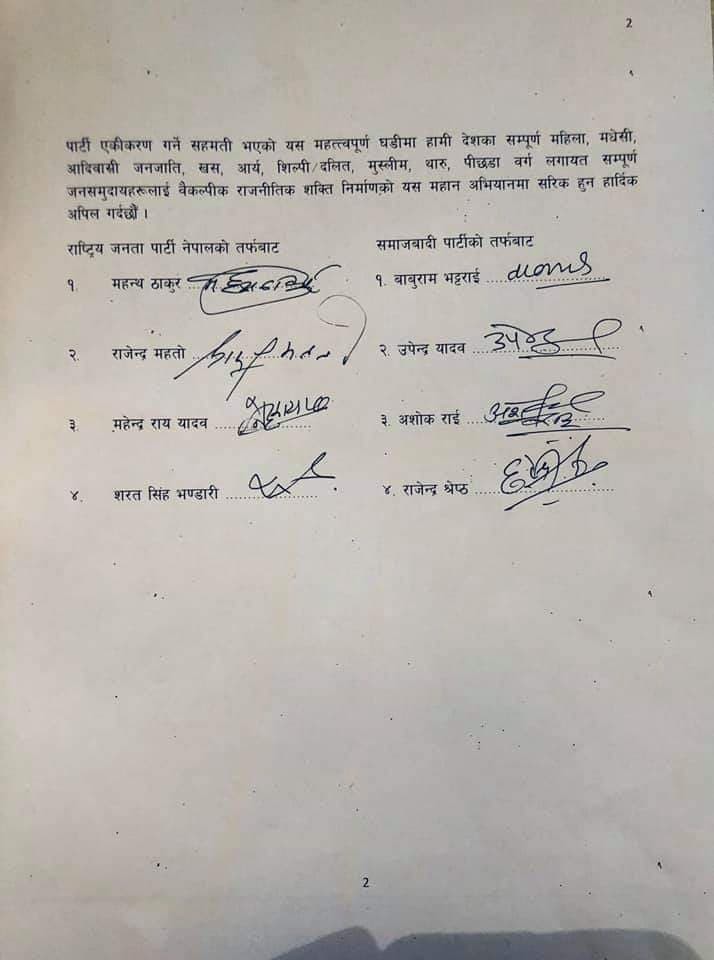 2
पार्टी एकीकरण गर्ने सहमती भएको यस महत्त्वपूर्ण घडीमा हामी देशका सम्पूर्ण महिला, मधेसी,
आदिवासी जनजाति, खस, आर्य, शिल्पी/दलित, मुस्लीम, थारु, पीछडा वर्ग लगायत सम्पूर्ण
जनसमुदायहरूलाई वैकल्पीक राजनीतिक शक्ति निर्माणको यस महान अभियानमा सरिक हुन हार्दिक
अपिल गर्दछौं ।
राष्ट्रिय जनता पार्टी नेपालको तर्फबाट समाजबादी पार्टीको तर्फबाट
१. महन्थ ठाकुर १. बाबुराम भट्टराई
२. राजेन्द्र महतो २. उपेन्द्र यादव
३. महेन्द्र राय यादव ३. अशोक राई
४. शरत सिंह भण्डारी ४. राजेन्द्र श्रेष्ठ
2